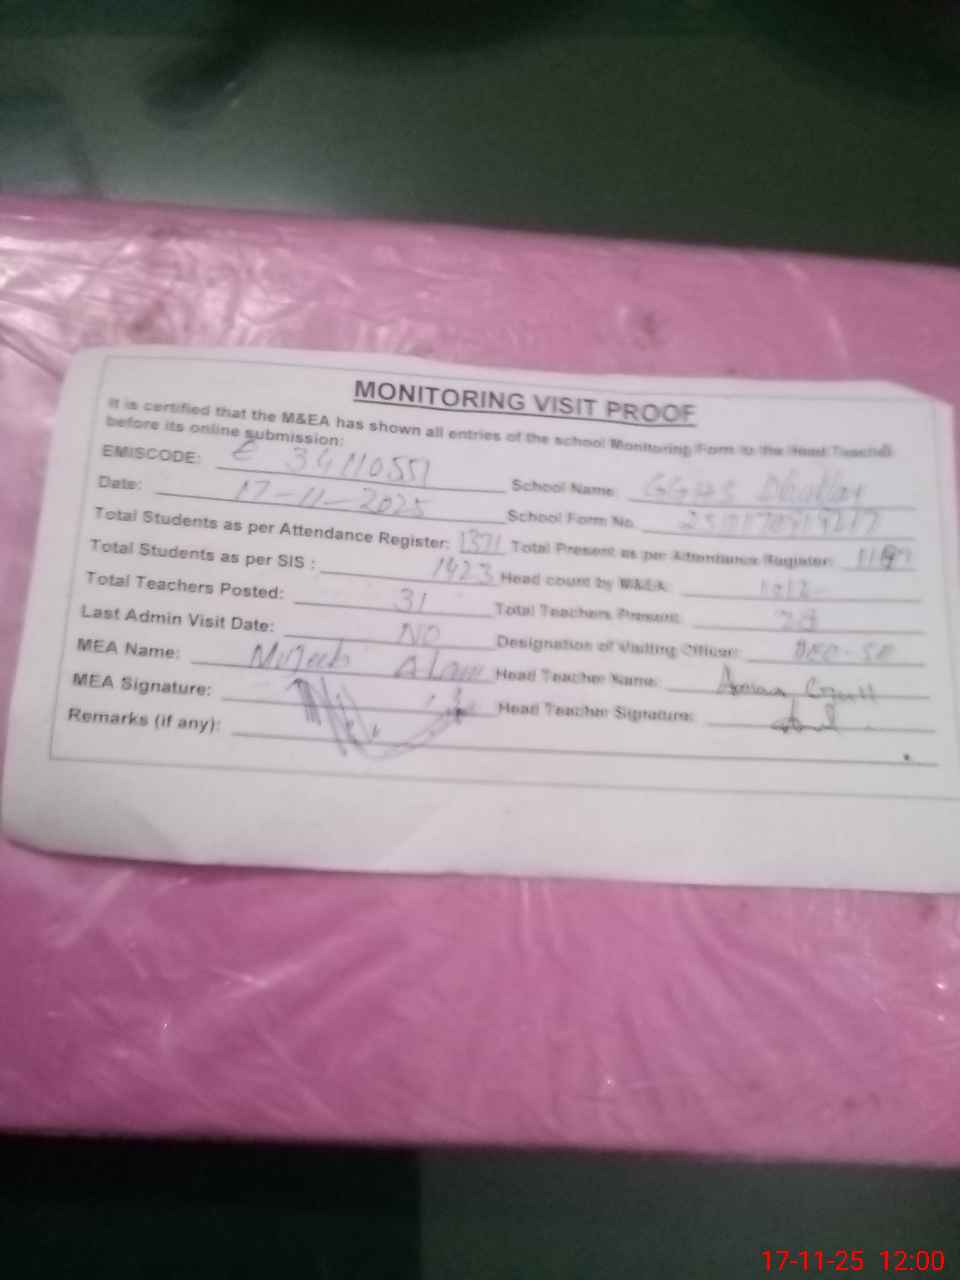 MONITORING VISIT PROOF
It is certified that the M&EA has shown all entries of the school Monitoring Form to the Head Teacher
before its online submission:
EMISCODE: 34110551 School Name:
Date: 17-11-2025 School Form No.
Total Students as per Attendance Register: 1371 Total Present as per Attendance Register:
Total Students as per SIS : 1423 Head count by M&EA:
Total Teachers Posted: 31 Total Teachers Present:
Last Admin Visit Date: NO Designation of Visiting Officer:
MEA Name: Alam Head Teacher Name:
MEA Signature: Head Teacher Signature:
Remarks (if any):
17-11-25 12:00